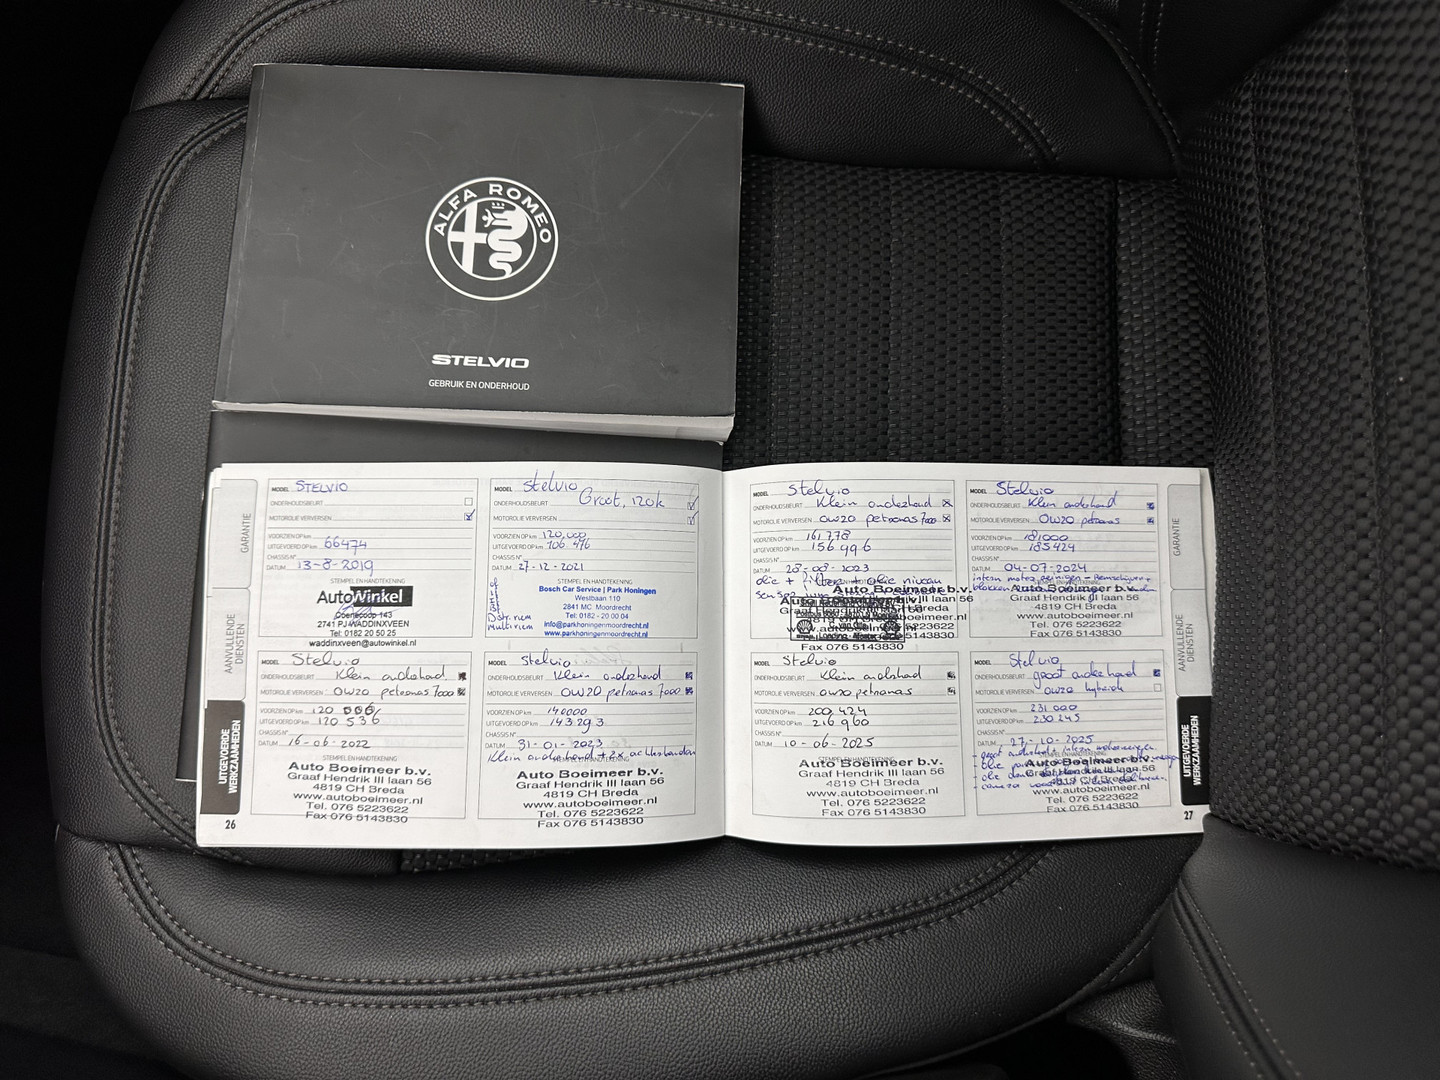 ALFA ROMEO
STELVIO
GEBRUIK EN ONDERHOUD
GARANTIE
AANVULLENDE DIENSTEN
UITGEVOERDE WERKZAAMHEDEN
26
MODEL STELVIO
ONDERHOUDSBEURT
MOTOROLIE VERVERSEN
VOORZIEN OP km
UITGEVOERD OP km 66474
CHASSIS N°
DATUM 13-8-2019
STEMPEL EN HANDTEKENING
AutoWinkel
2741 PJ WADDINXVEEN
Tel: 0182 20 50 25
waddinxveen@autowinkel.nl
MODEL Stelvio
ONDERHOUDSBEURT Groot, 120k
MOTOROLIE VERVERSEN
VOORZIEN OP km 120,000
UITGEVOERD OP km 106 476
CHASSIS N°
DATUM 27-12-2021
STEMPEL EN HANDTEKENING
Bosch Car Service | Park Honingen
Westbaan 110
2841 MC Moordrecht
Tel: 0182 - 20 00 04
info@parkhoningenmoordrecht.nl
www.parkhoningenmoordrecht.nl
Distr. riem
multiriem
Stelvio
ONDERHOUDSBEURT Klein onderhoud
MOTOROLIE VERVERSEN OW20 petronas 7000
VOORZIEN OP km 120
UITGEVOERD OP km 120 536
CHASSIS N°
DATUM 16-06-2022
STEMPEL EN HANDTEKENING
Auto Boeimeer b.v.
Graaf Hendrik III laan 56
4819 CH Breda
www.autoboeimeer.nl
Tel. 076 5223622
Fax 076 5143830
MODEL Stelvio
ONDERHOUDSBEURT Klein onderhoud
MOTOROLIE VERVERSEN OW20 petronas 7000
VOORZIEN OP km 140000
UITGEVOERD OP km 143293
CHASSIS N°
DATUM 31-01-2023
Klein onderhoud + 2x achterbanden
Auto Boeimeer b.v.
Graaf Hendrik III laan 56
4819 CH Breda
www.autoboeimeer.nl
Tel. 076 5223622
Fax 076 5143830
MODEL Stelvio
ONDERHOUDSBEURT Klein onderhoud
MOTOROLIE VERVERSEN OW20 petronas 7000
VOORZIEN OP km 161778
UITGEVOERD OP km 156996
CHASSIS N°
DATUM 28-08-2023
olie + filter + olie niveau
sensor
Auto Boeimeer b.v.
Graaf Hendrik III laan 56
Fax 076 5143830
MODEL Stelvio
ONDERHOUDSBEURT Klein onderhoud
MOTOROLIE VERVERSEN OW20 petronas
VOORZIEN OP km 181000
UITGEVOERD OP km 185424
CHASSIS N°
DATUM 04-07-2024
intern motor reinigen - remschijven +
blokken
Graaf Hendrik III laan 56
4819 CH Breda
www.autoboeimeer.nl
Tel. 076 5223622
Fax 076 5143830
MODEL Stelvio
ONDERHOUDSBEURT Klein onderhoud
MOTOROLIE VERVERSEN OW20 petronas
VOORZIEN OP km 200,424
UITGEVOERD OP km 216960
CHASSIS N°
DATUM 10-06-2025
STEMPEL EN HANDTEKENING
Auto Boeimeer b.v.
Graaf Hendrik III laan 56
4819 CH Breda
www.autoboeimeer.nl
Tel. 076 5223622
Fax 076 5143830
MODEL Stelvio
ONDERHOUDSBEURT groot onderhoud
MOTOROLIE VERVERSEN OW20
VOORZIEN OP km 231 000
UITGEVOERD OP km 230 245
CHASSIS N°
DATUM 27-10-2025
groot onderhoud + intern
Auto Boeimeer b.v.
Graaf Hendrik III laan 56
4819 CH Breda
www.autoboeimeer.nl
Tel. 076 5223622
Fax 076 5143830
GARANTIE
AANVULLENDE DIENSTEN
UITGEVOERDE WERKZAAMHEDEN
27